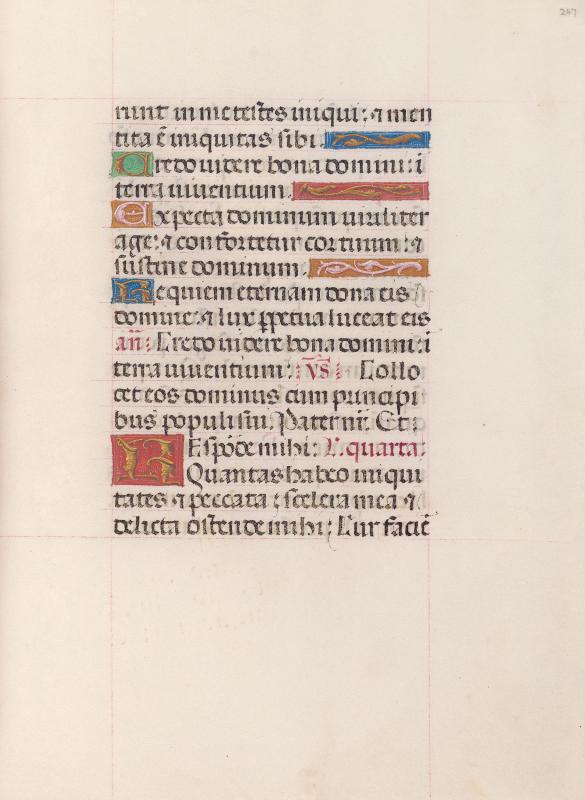 247
runt in me testes iniqui: ⁊ men
tita ē iniquitas sibi.
Credo videre bona domini: ī
terra viventium.
Expecta dominum viriliter
age: ⁊ confortetur cor tuum: ⁊
sustine dominum.
Requiem eternam dona eis
domine: ⁊ lux ꝑpetua luceat eis
añ: Credo videre bona domini: ī
terra viventium: VS Collo
cet eos dominus cum principi
bus populi sui. Pater nr̄. Et
Respōde mihi: L. quarta:
Quantas habeo iniqui
tates ⁊ peccata: scelera mea ⁊
delicta ostende mihi: Cur faciē